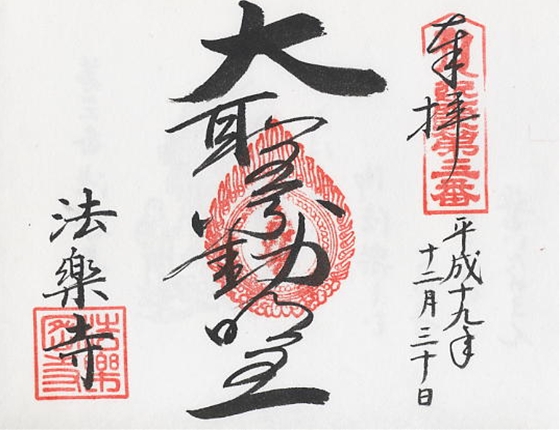 奉拝
第三番
平成十九年
十二月三十日
大聖不動明王
法樂寺